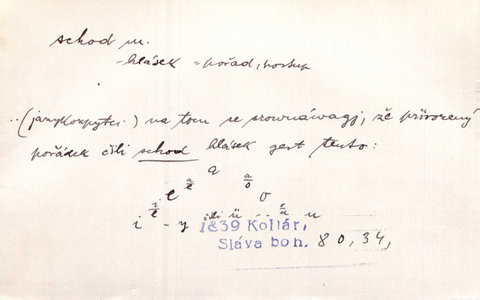 schod m.
-hlásek = pořad, postup
..(jazykozpytci.) na tom se srownáwagj, že přirozený
pořádek čili schod hlásek gest tento:
a
e a/e a/o o
i i/e - y čili ü .. o/u u
1839 Kollár,
Sláva boh. 80, 34,